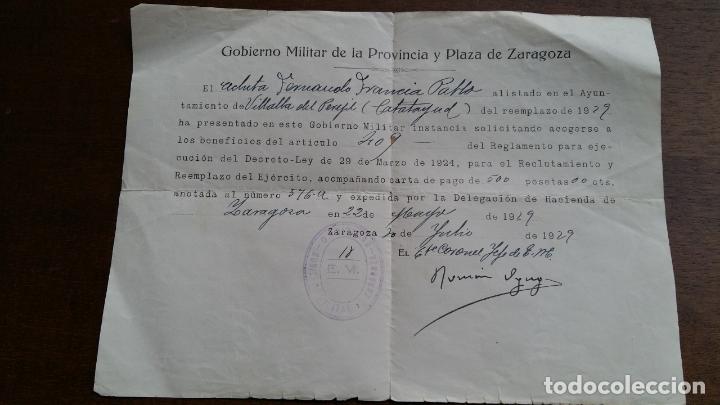 Gobierno Militar de la Provincia y Plaza de Zaragoza
El recluta Fernando Francia Pablo alistado en el Ayun-
tamiento de Villalba del Perejil (Calatayud) del reemplazo de 1929
ha presentado en este Gobierno Militar instancia solicitando acogerse a
los beneficios del artículo 409 — del Reglamento para eje-
cución del Decreto-Ley de 29 de Marzo de 1924, para el Reclutamiento y
Reemplazo del Ejército, acompañando carta de pago de 500 pesetas 00 cts.
anotada al número 576-A y expedida por la Delegación de Hacienda de
Zaragoza en 22 de Mayo de 1929
Zaragoza de Julio de 1929
El Tte Coronel Jefe de E.M.
18
E. M.
todocoleccion
todocoleccion.net